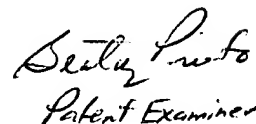 Beatriz Prieto
Patent Examiner